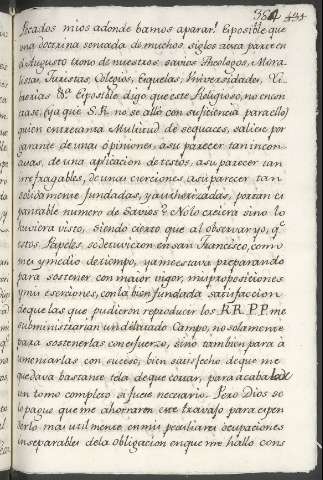 384 434
Pecados mios adonde bamos aparar! Eposible que
una doctrina sentada de muchos siglos aesta parte en
el Augusto trono de nuestros savios Theologos, Mora-
listas, Juristas, Colegios, Esquelas, Universidades, Li-
brerias &a. Eposible digo que este Religioso, no ensen
ase, (ya que S. R. no se alló con suficiencia para ello)
quien entre tanta Multitud de sequaces, saliese por
garante de unas opiniones, asu parecer tan incon
cusas, de una aplicacion de testos, asu parecer tan
irrefragables, de unas eserciones, asu parecer tan
solidamente fundadas, y authorizadas, por tan es
pantable numero de Savios? No lo creiera sino lo
huviera visto, Siendo cierto que al observar yo, qe
estos Papeles, sedetuvieron en san Francisco, como
mes y medio de tiempo, ya me estava preparando
para sostener con maior vigor, mis proposiciones
y mis eserciones, con la bien fundada satisfacion
de que las que pudieron reproducir los R.R. P.P. me
subministrarian un dilatado Campo, no solamente
para sostenerlas con esfuerzo, sino tambien para à
umentarlas con suceso, bien satisfecho de que me
quedava bastante tela de que cortar, para acabalar
un tomo completo si fuese necesario. Pero Dios se
lo pague que me ahorraron este travajo para espen
derlo mas utilmente, en mis peculiares ocupaciones
inseparables de la obligacion en que me hallo cons